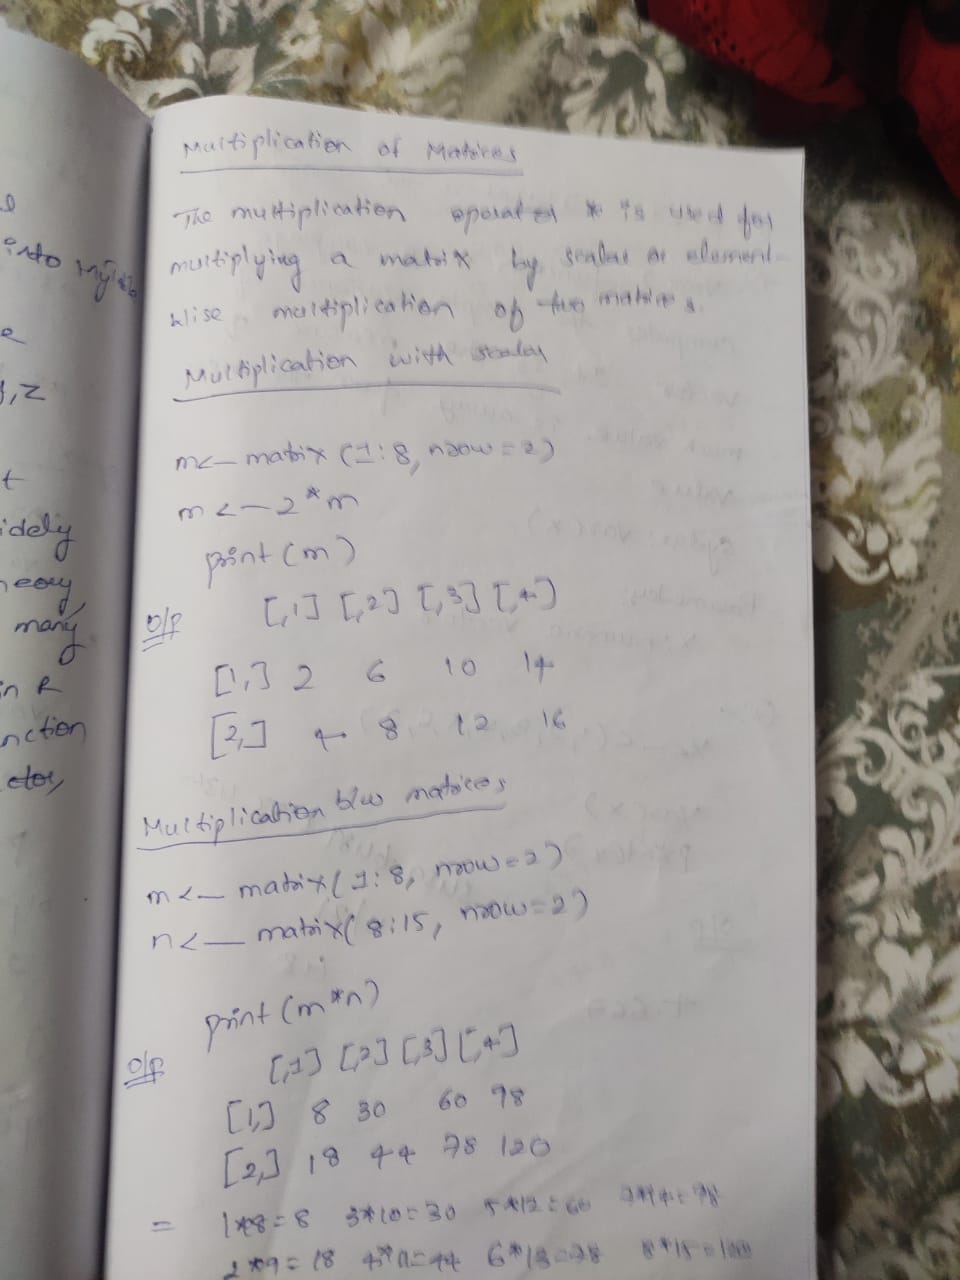 l
into
e
t
idely
many
in R
nction
ctor,
Multiplication of Matrices
The multiplication operator * is used for
multiplying a matrix by scalar or element-
wise multiplication of two matrices.
Multiplication with scalar
m<- matrix (1:8, nrow = 2)
m <- 2*m
print (m)
o/p [,1] [,2] [,3] [,4]
[1,] 2 6 10 14
[2,] 4 8 12 16
Multiplication b/w matrices
m <- matrix(1:8, nrow=2)
n <- matrix(8:15, nrow=2)
print (m*n)
o/p [,1] [,2] [,3] [,4]
[1,] 8 30 60 98
[2,] 18 44 78 120
= 1*8=8 3*10=30 5*12=60 7*14=98
2*9=18 4*11=44 6*13=78 8*15=120